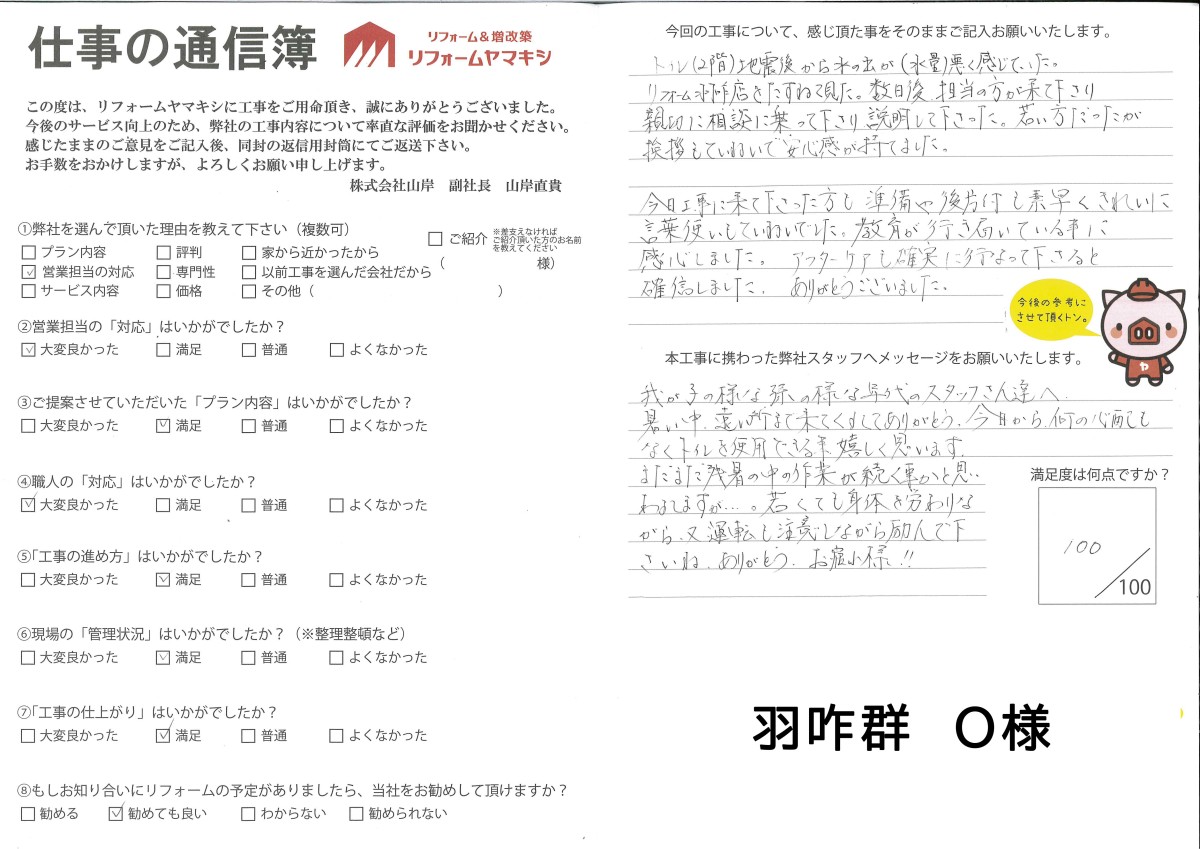 仕事の通信簿
リフォーム&増改築
リフォームヤマキシ
この度は、リフォームヤマキシに工事をご用命頂き、誠にありがとうございました。
今後のサービス向上のため、弊社の工事内容について率直な評価をお聞かせください。
感じたままのご意見をご記入後、同封の返信用封筒にてご返送下さい。
お手数をおかけしますが、よろしくお願い申し上げます。
株式会社山岸 副社長 山岸直貴
①弊社を選んで頂いた理由を教えて下さい（複数可）
□プラン内容 □評判 □家から近かったから
☑営業担当の対応 □専門性 □以前工事を選んだ会社だから
□サービス内容 □価格 □その他（ ）
□ご紹介 ※差支えなければ
ご紹介頂いた方のお名前
を教えてください
（ 様）
②営業担当の「対応」はいかがでしたか？
☑大変良かった □満足 □普通 □よくなかった
③ご提案させていただいた「プラン内容」はいかがでしたか？
□大変良かった ☑満足 □普通 □よくなかった
④職人の「対応」はいかがでしたか？
☑大変良かった □満足 □普通 □よくなかった
⑤「工事の進め方」はいかがでしたか？
□大変良かった ☑満足 □普通 □よくなかった
⑥現場の「管理状況」はいかがでしたか？（※整理整頓など）
□大変良かった ☑満足 □普通 □よくなかった
⑦「工事の仕上がり」はいかがでしたか？
□大変良かった ☑満足 □普通 □よくなかった
⑧もしお知り合いにリフォームの予定がありましたら、当社をお勧めして頂けますか？
□勧める ☑勧めても良い □わからない □勧められない
今回の工事について、感じ頂た事をそのままご記入お願いいたします。
トイレ(2階)地震後から水の出が(水量)悪く感じていた。
リフォーム羽咋店をたずねて見た。数日後、担当の方が来て下さり
親切に相談に乗って下さり説明して下さった。若い方だったが
挨拶もていねいで安心感が持てました。
今日工事に来て下さった方も準備や後片付も素早くきれいに
言葉使いもていねいでした。教育が行き届いている事に
感心しました。アフターケアも確実に行なって下さると
確信しました。ありがとうございました。
今後の参考に
させて頂くトン。
ヤ
本工事に携わった弊社スタッフへメッセージをお願いいたします。
我が子の様な孫の様な年代のスタッフさん達へ
暑い中、遠い所まで来てくれてありがとう。今日から何の心配も
なくトイレを使用できる事嬉しく思います。
まだまだ残暑の中の作業が続く事かと思
われますが…。若くても身体を労わりな
がら、又運転も注意しながら励んで下
さいね。ありがとう。お疲れ様!!
満足度は何点ですか？
100
/100
羽咋群 O様